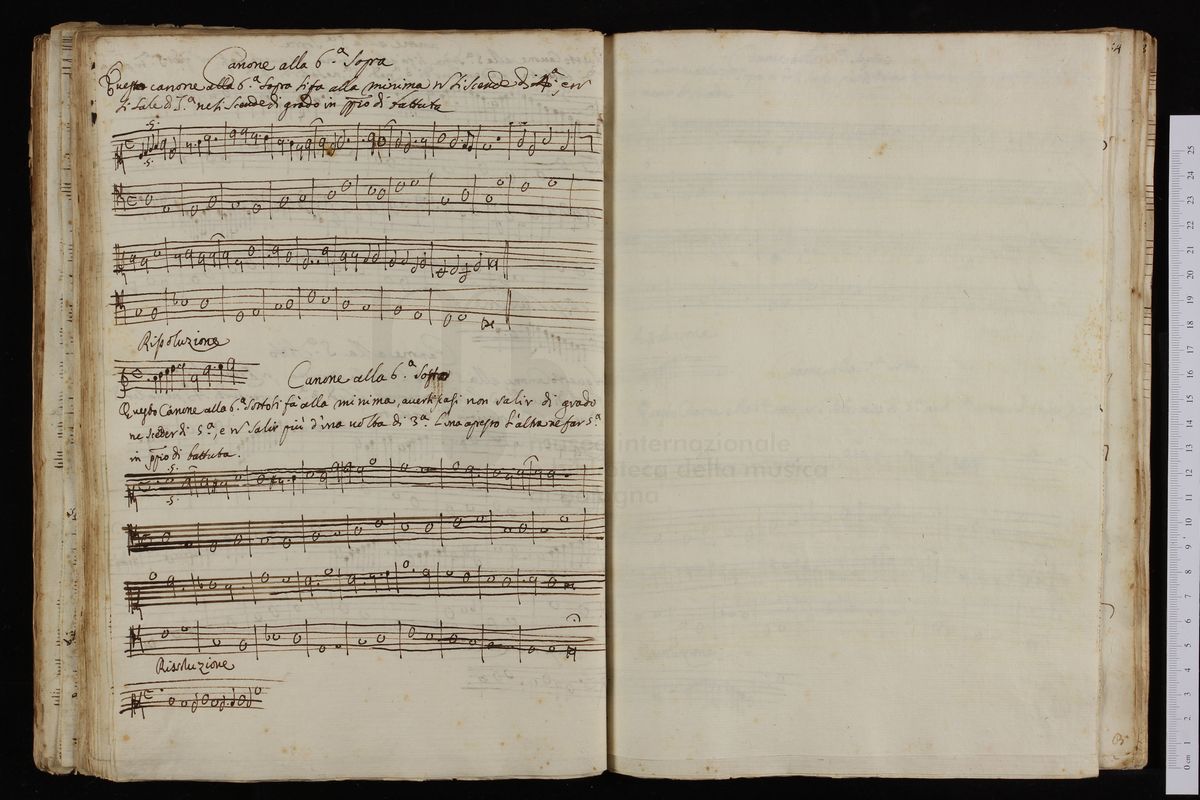 Canone alla 6.ª Sopra
Questo canone alla 6.ª Sopra si fa alla minima nō si scende di 4.ª, e nō
si Sale di 3.ª ne si Scende di grado in pp̄io di battuta
.S.
.S.
Rissoluzione
Canone alla 6.ª Sotto
Questo Canone alla 6.ª Sotto si fà alla minima, averticasi non salir di grado
ne sceder di 5.ª, e nō salir più d'una volta di 3.ª l'una apresso l'altra ne far 5.ª
in pp̄io di battuta.
.S.
.S.
Rissoluzione
museo internazionale
e biblioteca della musica
di bologna
0 cm 1 2 3 4 5 6 7 8 9 10 11 12 13 14 15 16 17 18 19 20 21 22 23 24 25